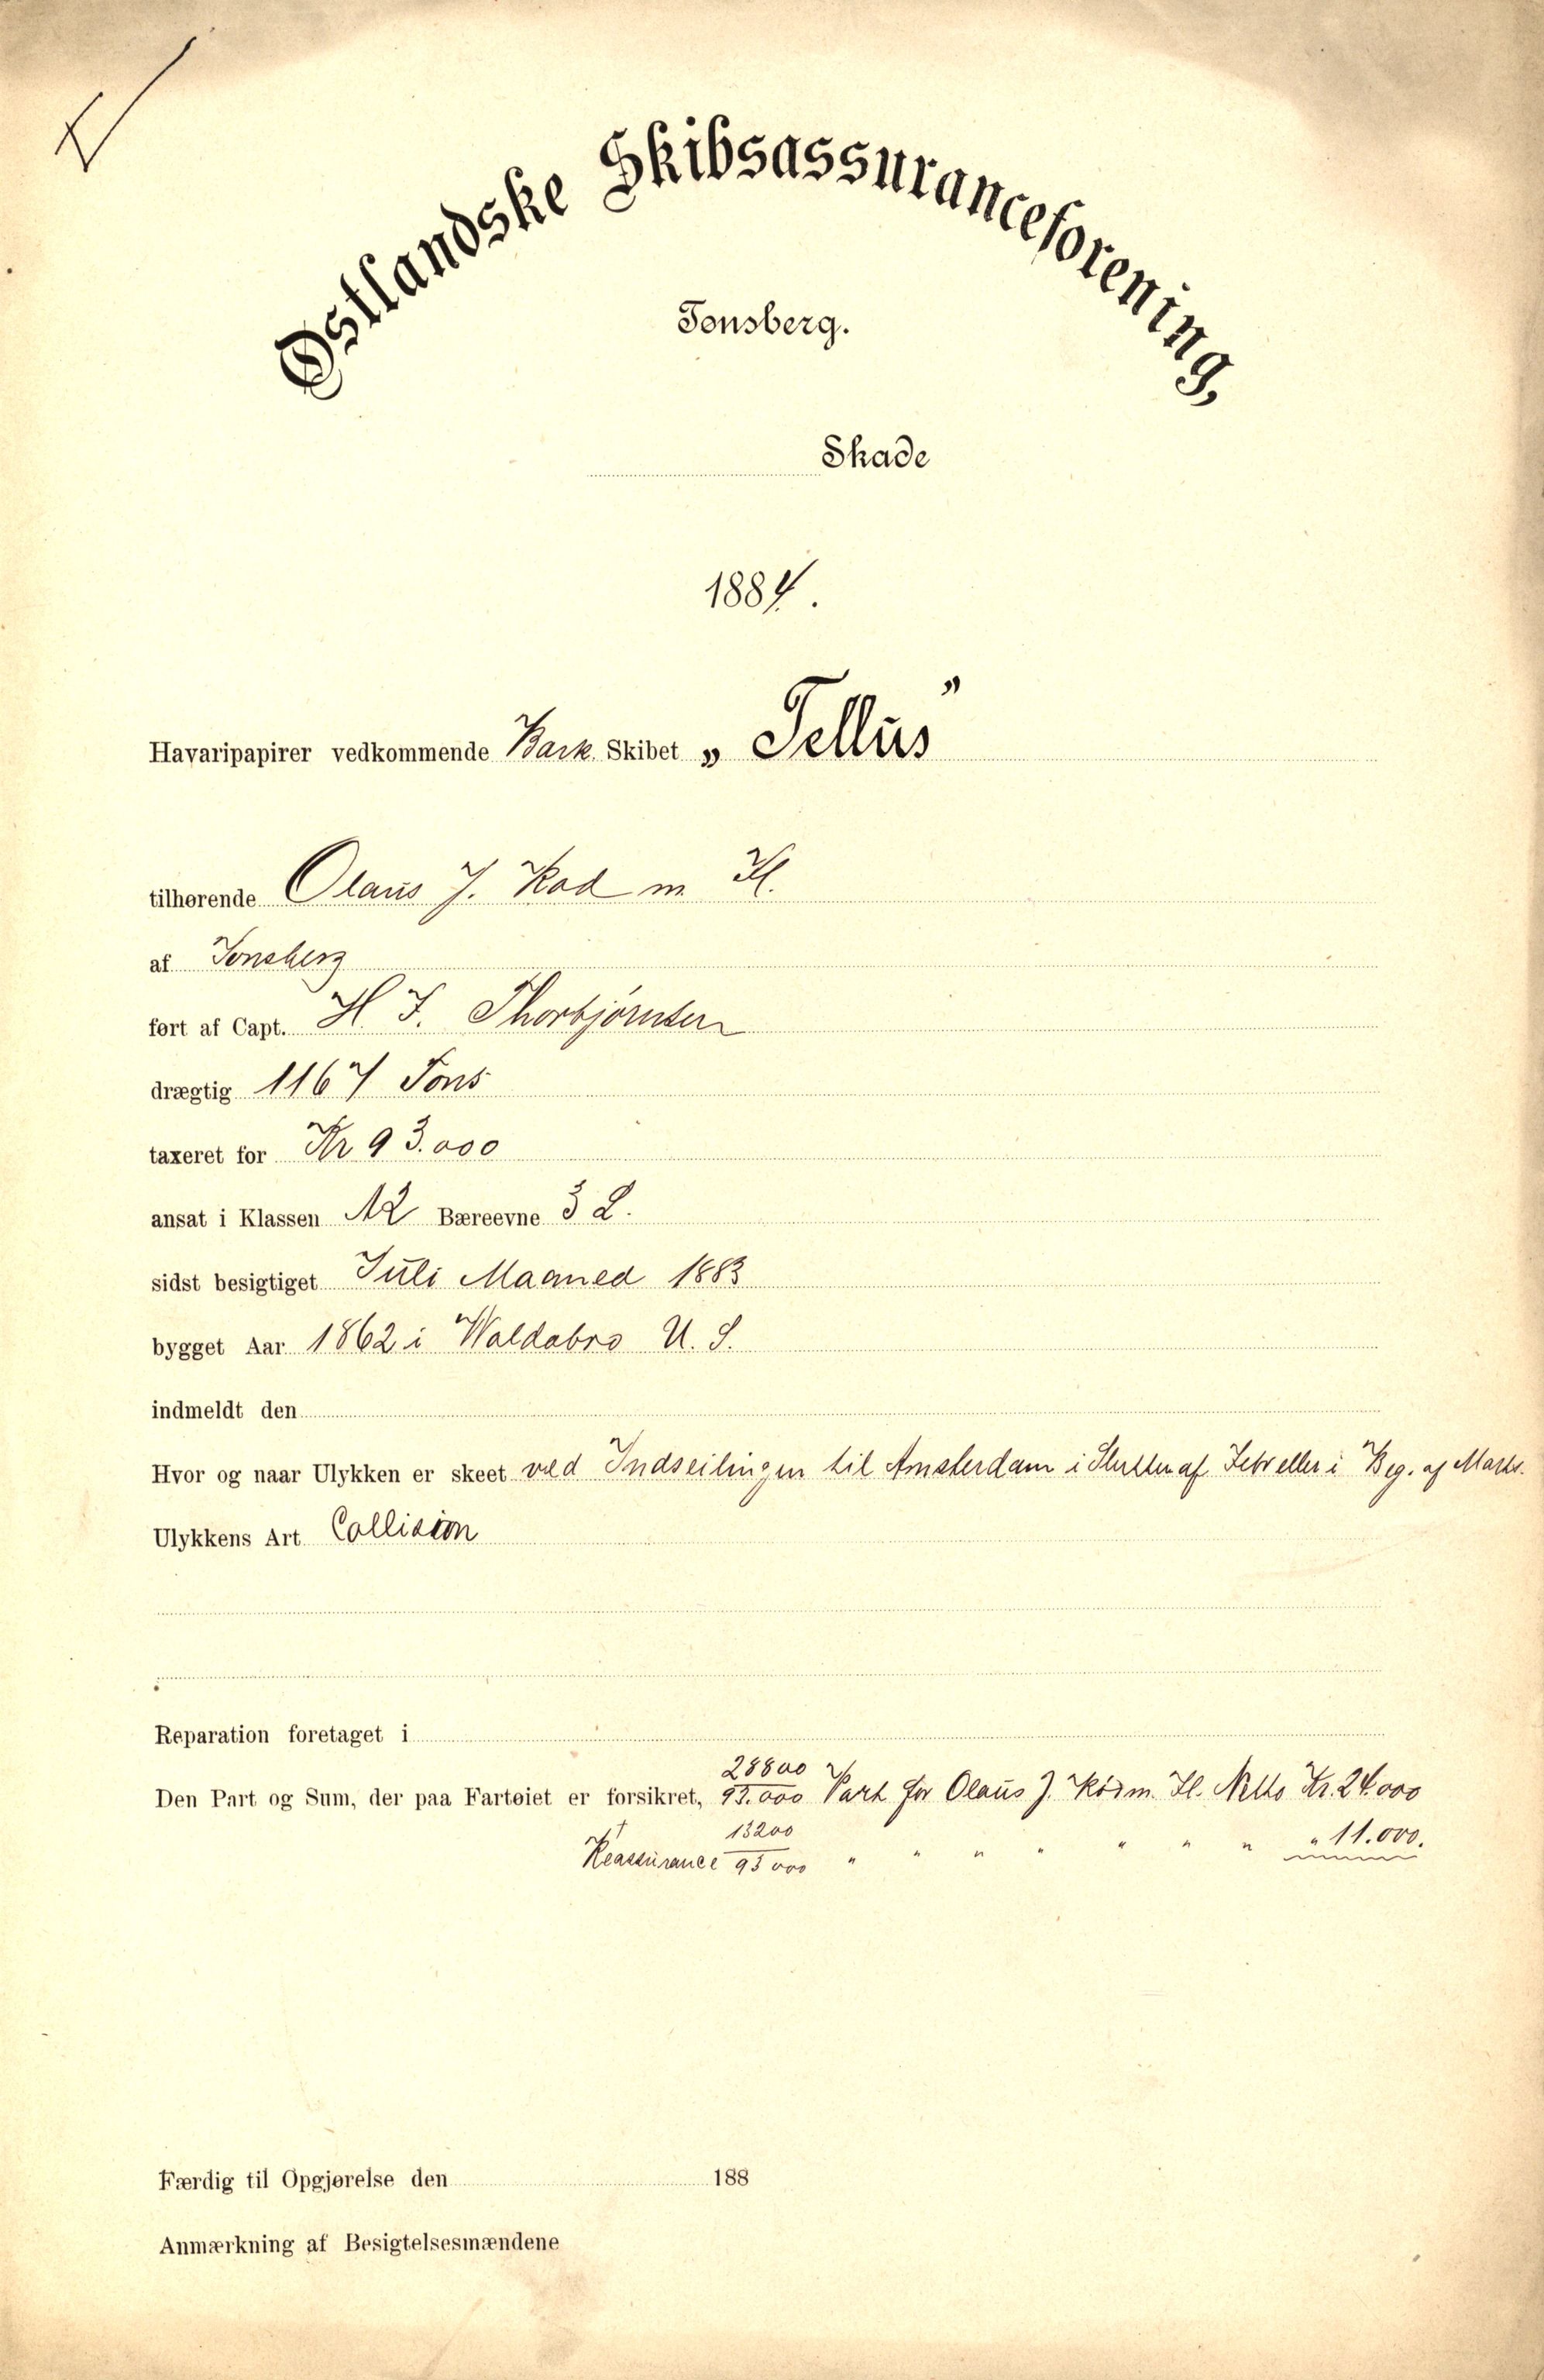 Østlandske Skibsassuranceforening,
Tønsberg.
Skade
1884.
Havaripapirer vedkommende Bark Skibet „Tellus”
tilhørende Olaus J. Rød m Fl.
af Tønsberg
ført af Capt. H. F. Thorbjørnsen
drægtig 1167 Tons
taxeret for Kr 93.000
ansat i Klassen A2 Bæreevne 3 L.
sidst besigtiget Juli Maaned 1883
bygget Aar 1862 i Waldobro U. S.
indmeldt den
Hvor og naar Ulykken er skeet ved Indseilingen til Amsterdam i Slutten af Febr eller i Beg. af Marts.
Ulykkens Art Collision
Reparation foretaget i
Den Part og Sum, der paa Fartøiet er forsikret, 28800/93.000 Part for Olaus J. Rød m. Fl. Netto Kr. 24.000
Reassurance 13200/93000 " " " " " " " " 11.000.
Færdig til Opgjørelse den 188
Anmærkning af Besigtelsesmændene